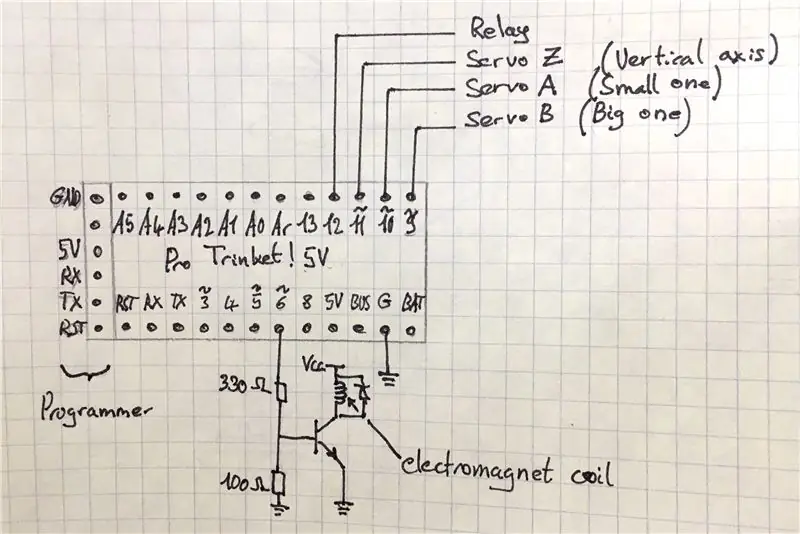 Relay
Servo Z (Vertical axis)
Servo A (Small one)
Servo B (Big one)
GND
A5 A4 A3 A2 A1 A0 Ar 13 12 ~11 ~10 ~9
5V
Pro Trinket! 5V
RX
TX
RST RX TX ~3 4 ~5 ~6 8 5V BUS G BAT
RST
Vcc
330 Ω
Programmer
electromagnet coil
100 Ω